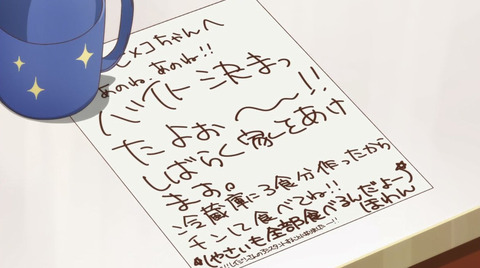 ヒメコちゃんへ
あのね、あのね!!
バイト決まっ
たよお〜〜!!
しばらく家をあけ
ます。
冷蔵庫に3食分作ったから
チンして食べてね!!
やさいも全部食べるんだよー♪
ほわん